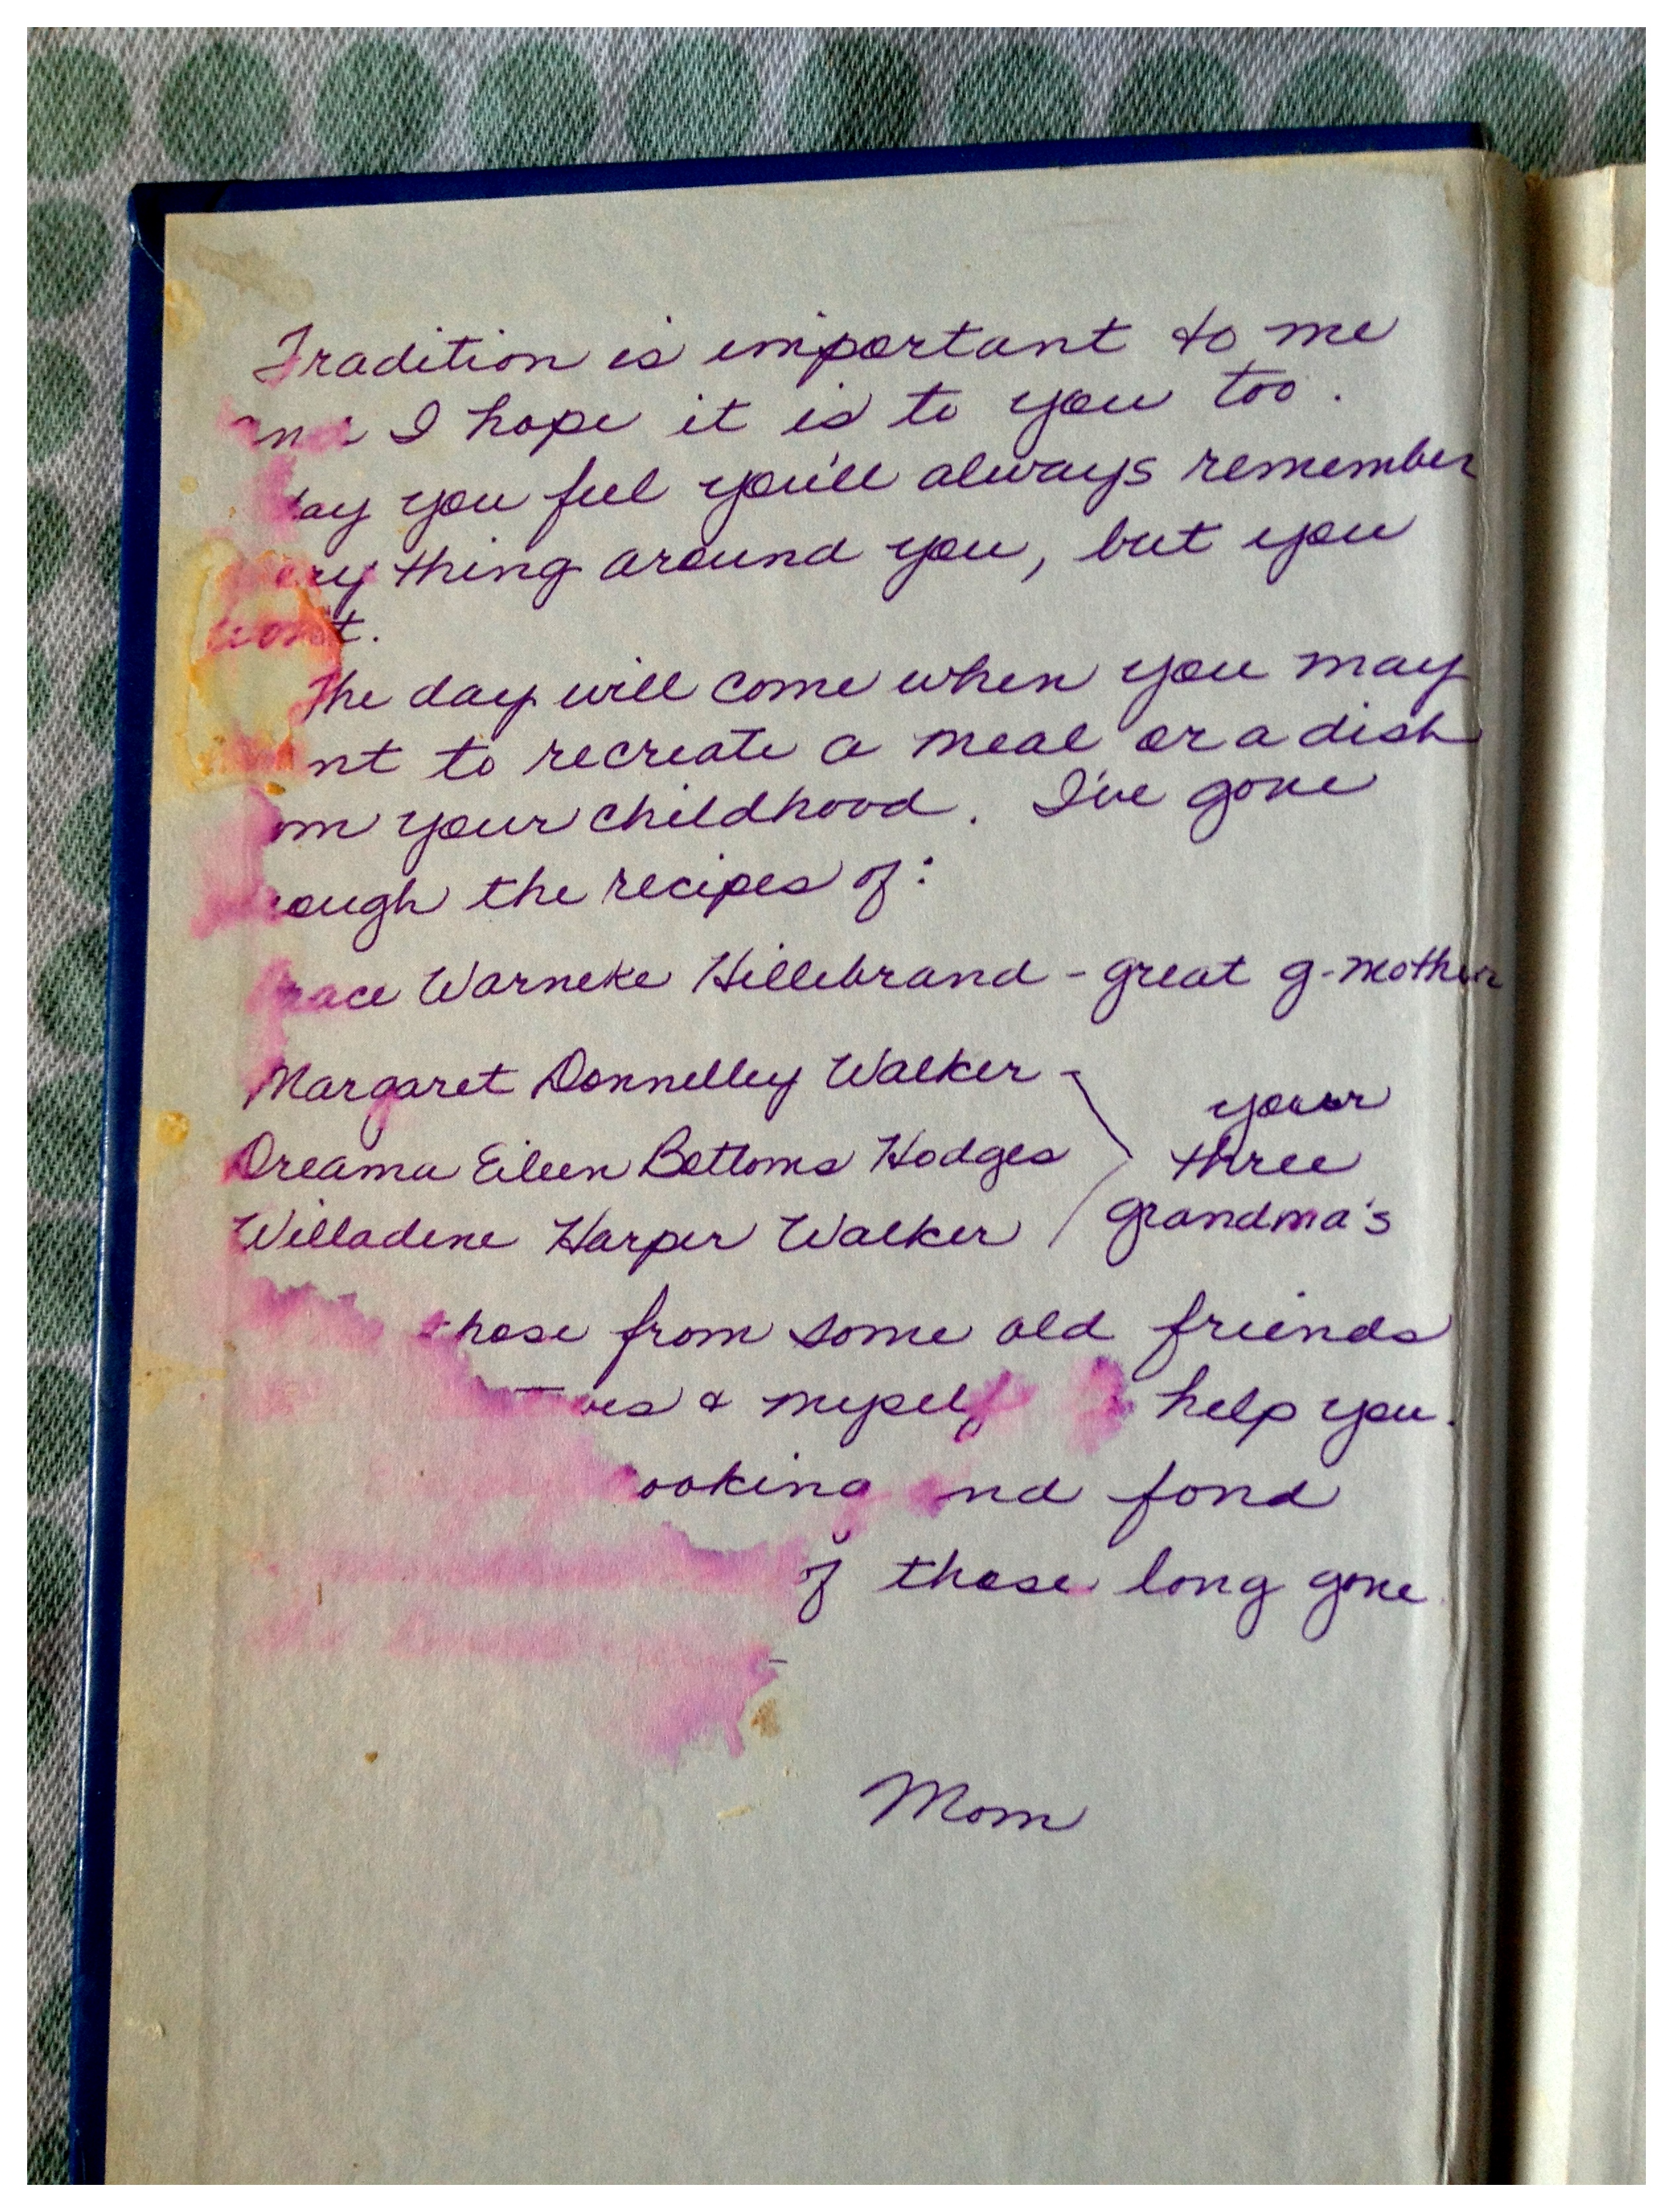 Tradition is important to me
and I hope it is to you too.
you feel you'll always remember
everything around you, but you
won't.
The day will come when you may
to recreate a meal or a dish
your childhood. I've gone
the recipes of:
Grace Warneke Hillebrand - great g-mother
Margaret Donnelley Walker -
Dreama Eileen Bottoms Hodges
Willadene Harper Walker
your
three
grandma's
those from some old friends
& myself help you.
fond
of those long gone
Mom